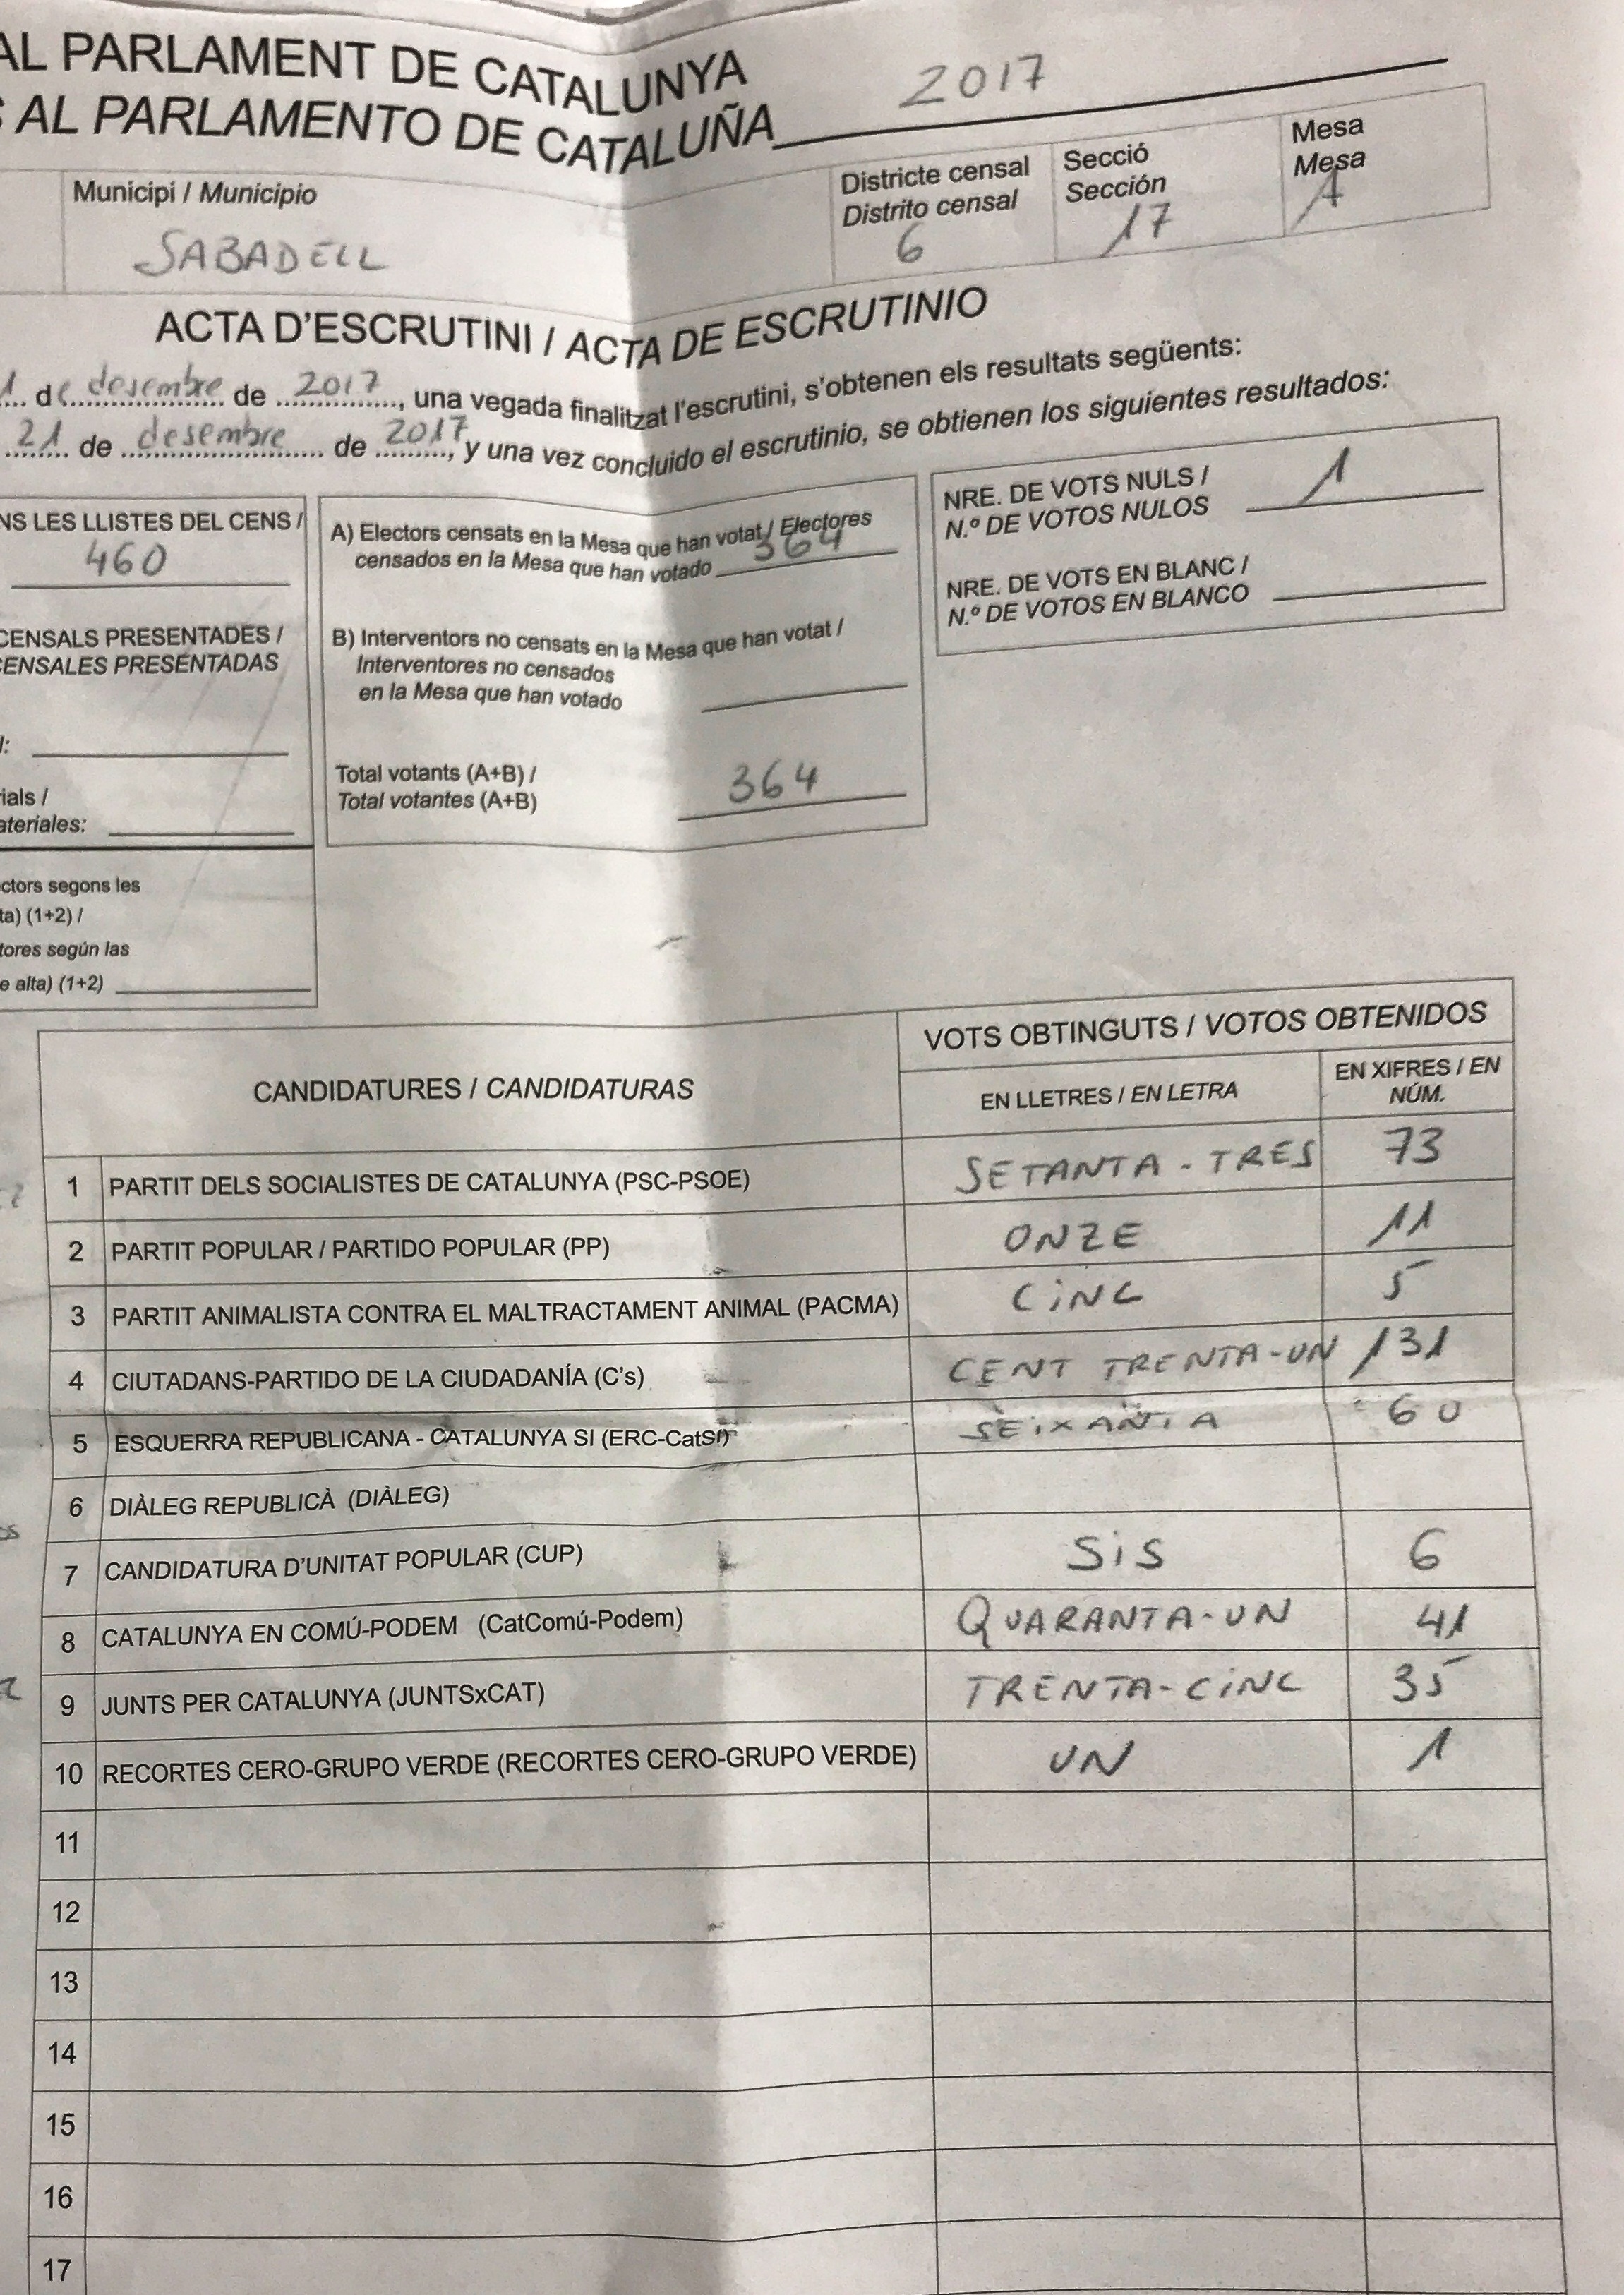 AL PARLAMENT DE CATALUNYA
S AL PARLAMENTO DE CATALUÑA 2017
Municipi / Municipio
SABADELL
Districte censal
Distrito censal
6
Secció
Sección
17
Mesa
Mesa
A
ACTA D'ESCRUTINI / ACTA DE ESCRUTINIO
1 de desembre de 2017, una vegada finalitzat l'escrutini, s'obtenen els resultats següents:
21 de desembre de 2017, y una vez concluido el escrutinio, se obtienen los siguientes resultados:
NS LES LLISTES DEL CENS /
460
CENSALS PRESENTADES /
CENSALES PRESENTADAS
l:
rials /
ateriales:
ctors segons les
ta) (1+2) /
tores según las
e alta) (1+2)
A) Electors censats en la Mesa que han votat / Electores
censados en la Mesa que han votado 364
B) Interventors no censats en la Mesa que han votat /
Interventores no censados
en la Mesa que han votado
Total votants (A+B) /
Total votantes (A+B) 364
NRE. DE VOTS NULS /
N.º DE VOTOS NULOS 1
NRE. DE VOTS EN BLANC /
N.º DE VOTOS EN BLANCO
CANDIDATURES / CANDIDATURAS
VOTS OBTINGUTS / VOTOS OBTENIDOS
EN LLETRES / EN LETRA
EN XIFRES / EN
NÚM.
1 PARTIT DELS SOCIALISTES DE CATALUNYA (PSC-PSOE) SETANTA-TRES 73
2 PARTIT POPULAR / PARTIDO POPULAR (PP) ONZE 11
3 PARTIT ANIMALISTA CONTRA EL MALTRACTAMENT ANIMAL (PACMA) CINC 5
4 CIUTADANS-PARTIDO DE LA CIUDADANÍA (C's) CENT TRENTA-UN 131
5 ESQUERRA REPUBLICANA - CATALUNYA SI (ERC-CatSí) SEIXANTA 60
6 DIÀLEG REPUBLICÀ (DIÀLEG)
7 CANDIDATURA D'UNITAT POPULAR (CUP) SIS 6
8 CATALUNYA EN COMÚ-PODEM (CatComú-Podem) QUARANTA-UN 41
9 JUNTS PER CATALUNYA (JUNTSxCAT) TRENTA-CINC 35
10 RECORTES CERO-GRUPO VERDE (RECORTES CERO-GRUPO VERDE) UN 1
11
12
13
14
15
16
17